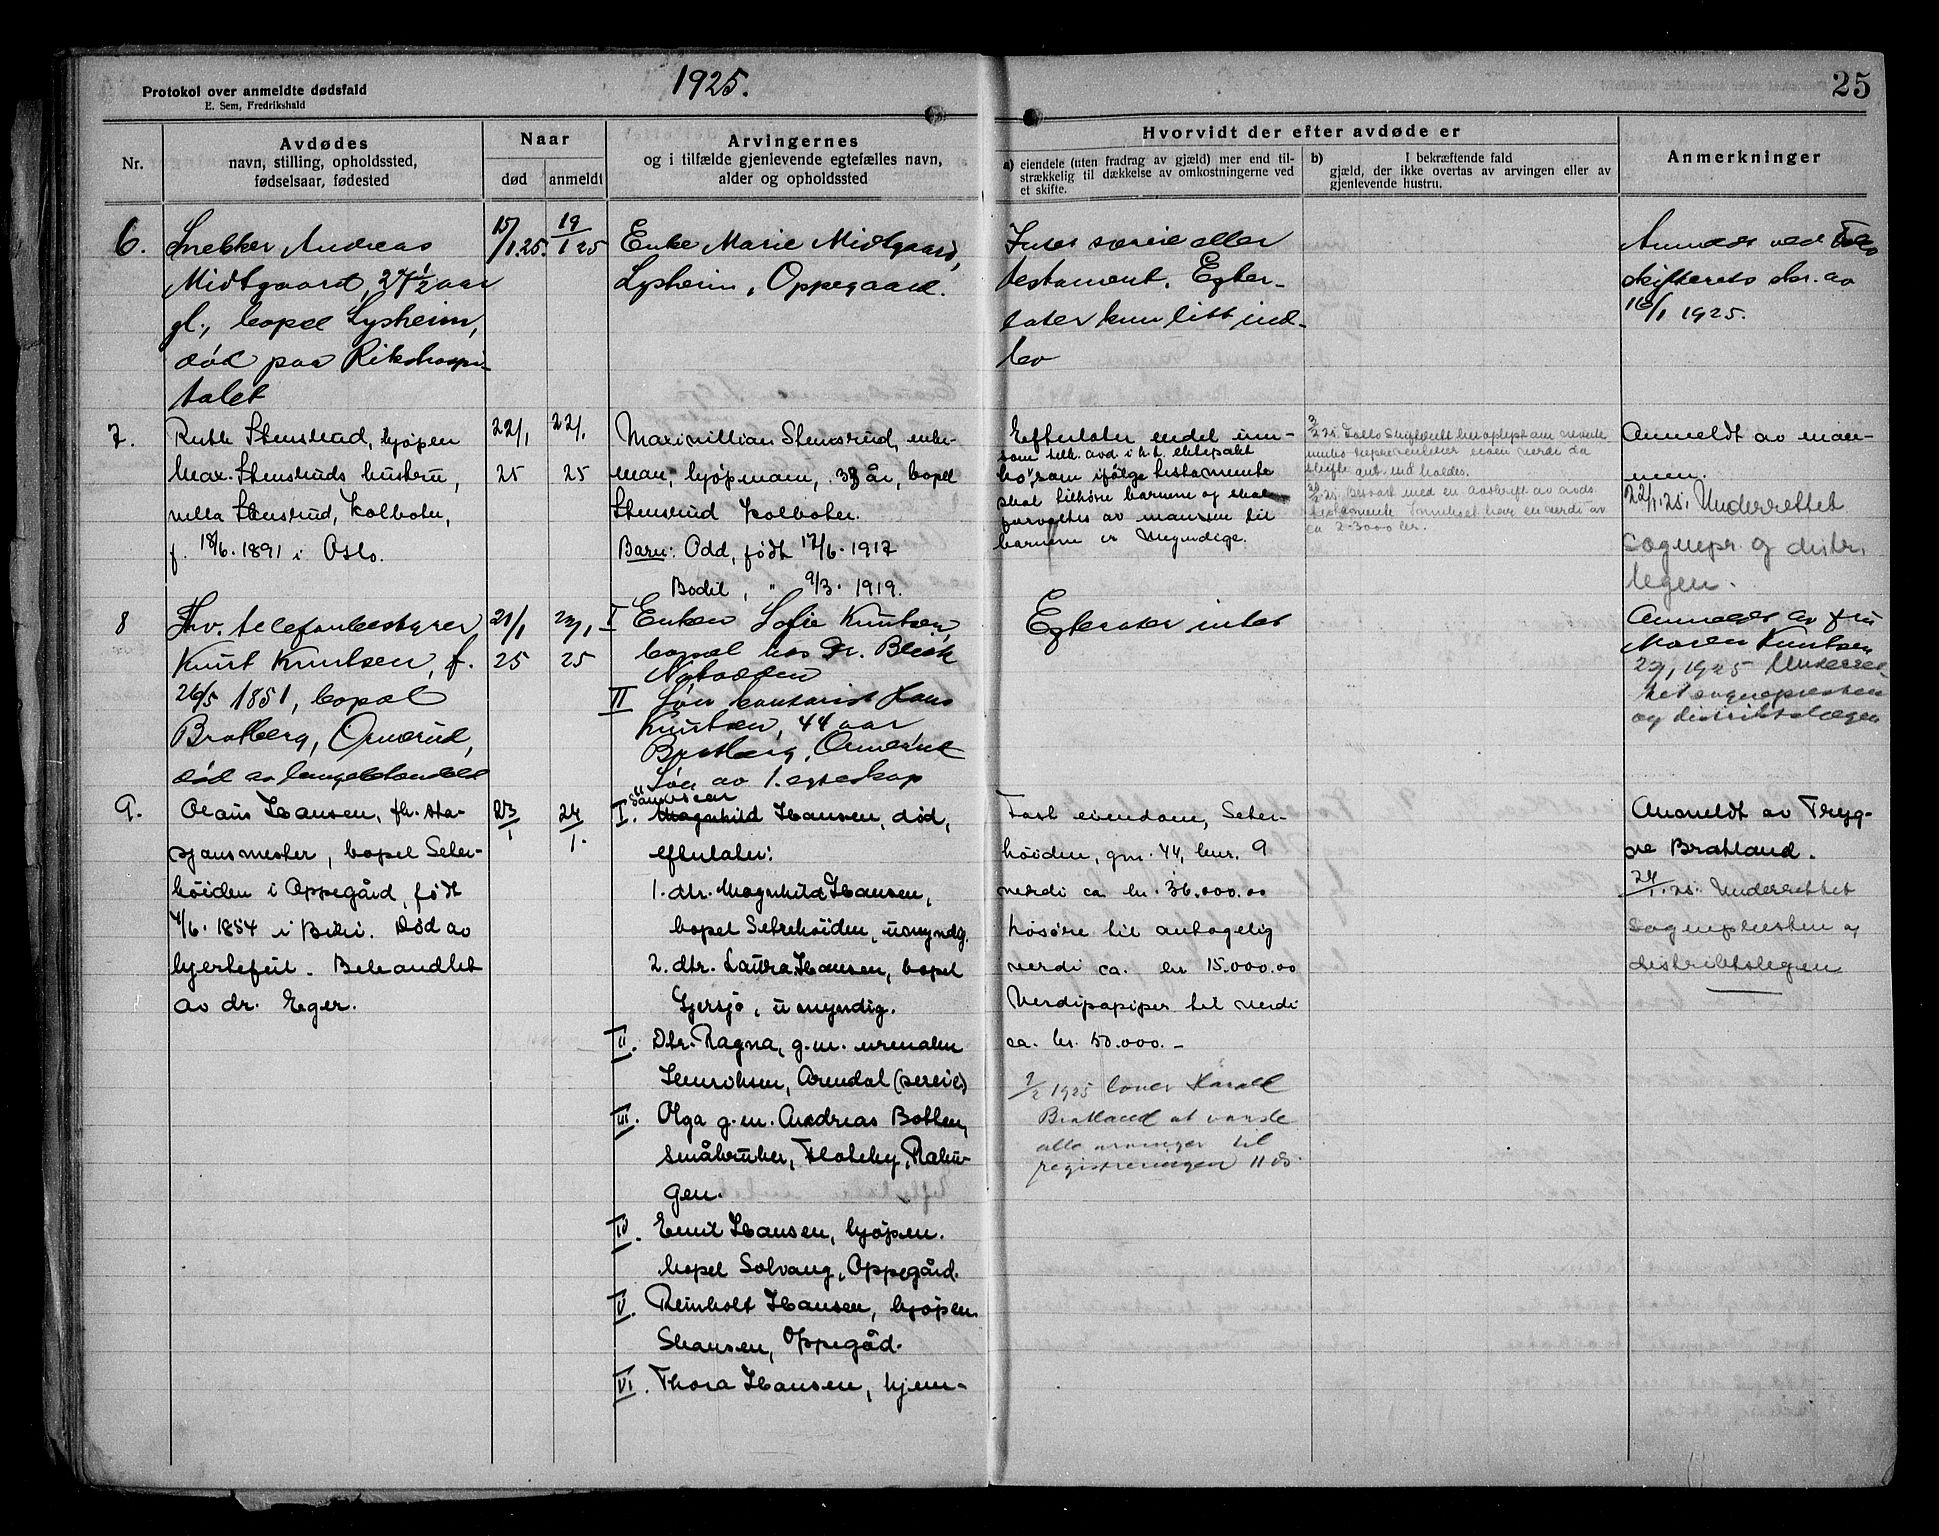 Protokol over anmeldte dødsfald
E. Sem, Fredrikshald
1925.
25
Nr.
Avdødes
navn, stilling, opholdssted,
fødselsaar, fødested
Naar
død
anmeldt
Arvingernes
og i tilfælde gjenlevende egtefælles navn,
alder og opholdssted
Hvorvidt der efter avdøde er
a) eiendele (uten fradrag av gjæld) mer end til-
strækkelig til dækkelse av omkostningerne ved
et skifte.
b) I bekræftende fald
gjæld, der ikke overtas av arvingen eller av
gjenlevende hustru.
Anmerkninger
6.
Snekker Andreas
Midtgaard, 27½ aar
gl., bopæl Lysheim,
død paa Rikshospi-
talet
15/1.25.
19/1 25
Enke Marie Midtgaard,
Lysheim, Oppegaard.
Intet særeie eller
testament. Efter-
later kun litt ind-
bo
Anmeldt ved
skifterets skr. av
16/1 1925.
7.
Ruth Stensrud, kjøpm
Max. Stensruds hustru,
villa Stensrud, Kolboten,
f. 18/6. 1891 i Oslo.
22/1
25
22/1
25
Maximillian Stensrud, enke-
man, kjøpmann, 38 år, bopel
Stensrud Kolboten.
Barn: Odd, født 17/6. 1917
Bodil, " 9/3. 1919.
Efterlater endel inn-
som tilh. avd i h.t. ektepakt
bo, som ifølge testamente
skal tilhøre barnene og skal
forvaltes av mannen til
barnene er myndige.
skifte ant. må holdes.
ca 2-3000 kr.
Anmeldt av man-
nen.
22/1.25. Underrettet
sognepr. og distr.
legen.
8
Fhv. telefonbestyrer
Knut Knutsen, f.
26/5 1851, bopæl
Bratberg, Ormerud,
død av lungebetændelse
21/1
25
23/1
25
I Enken Sofie Knutsen,
bopæl hos Dr.
Notodden
II Søn kontorist Hans
Knutsen, 44 aar
Bratberg, Ormerud
Søn av 1. egteskap
Efterlater intet
Anmeldt av fru
Maren Knutsen
23/1 1925 Underret-
tet sognepresten
og distriktslægen
9.
Olaus Hansen, fh. sta-
sjonsmester, bopel Seter-
høiden i Oppegård, født
4/6. 1854 i Biri. Død av
hjertefeil. Behandlet
av dr. Eger.
23/1
24/1.
I. Magnhild Hansen, død,
efterlater:
1. dtr. Magnhild Hansen,
bopel Setrehøiden, umyndg.
2. dtr. Laura Hansen, bopel
Gjersjø, umyndig.
II. Dtr. Ragna, g.m. urmaker
Henriksen, Arendal (særeie)
III. Olga g.m. Andreas Botten,
småbruker, Flateby, Enebak-
IV. Emil Hansen, kjøpm.
bopel Solvang, Oppegård.
V. Reinholt Hansen, kjøpm.
Skansen, Oppegåd.
VI. Thora Hansen, hjem-
Fast eiendom, Seter-
høiden, gnr. 44, bnr. 9
verdi ca. kr. 36.000.00
løsøre til antagelig
verdi ca. kr 15.000.00
Verdipapiper til verdi
ca. kr. 50.000.-
9/2 1925 lover Harald
Bratland at varsle
alle arvinger til
registreringen 11 ds.
Anmeldt av Tryg-
ve Bratland.
24/1.25. Underrettet
sognepresten og
distriktslegen